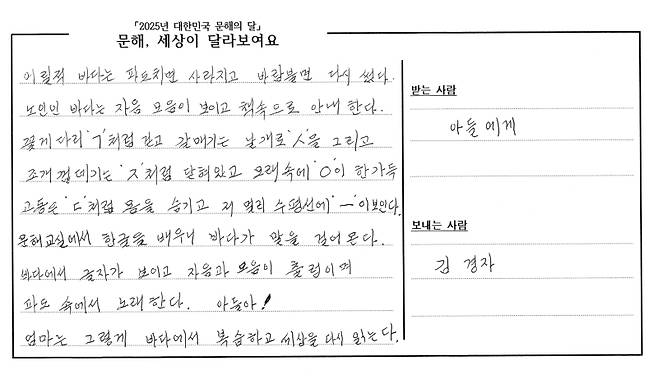 「2025년 대한민국 문해의 달」
문해, 세상이 달라보여요
어릴적 바다는 파도치면 사라지고 바람불면 다시 썼다.
노인인 바다는 자음 모음이 보이고 책속으로 안내 한다.
꽃게 다리 'ㄱ'처럼 걷고 갈매기는 날개로 'ㅅ'을 그리고
조개 껍데기는 'ㅈ'처럼 닫혀있고 모래속에 'ㅇ'이 한가득
고동은 'ㄷ'처럼 몸을 숨기고 저 멀리 수평선에 'ㅡ'이보인다.
문해교실에서 한글을 배우니 바다가 말을 걸어 온다.
바다에서 글자가 보이고 자음과 모음이 출렁이며
파도 속에서 노래한다. 아들아!
엄마는 그렇게 바다에서 복습하고 세상을 다시 읽는다.
받는 사람
아들에게
보내는 사람
김 경자